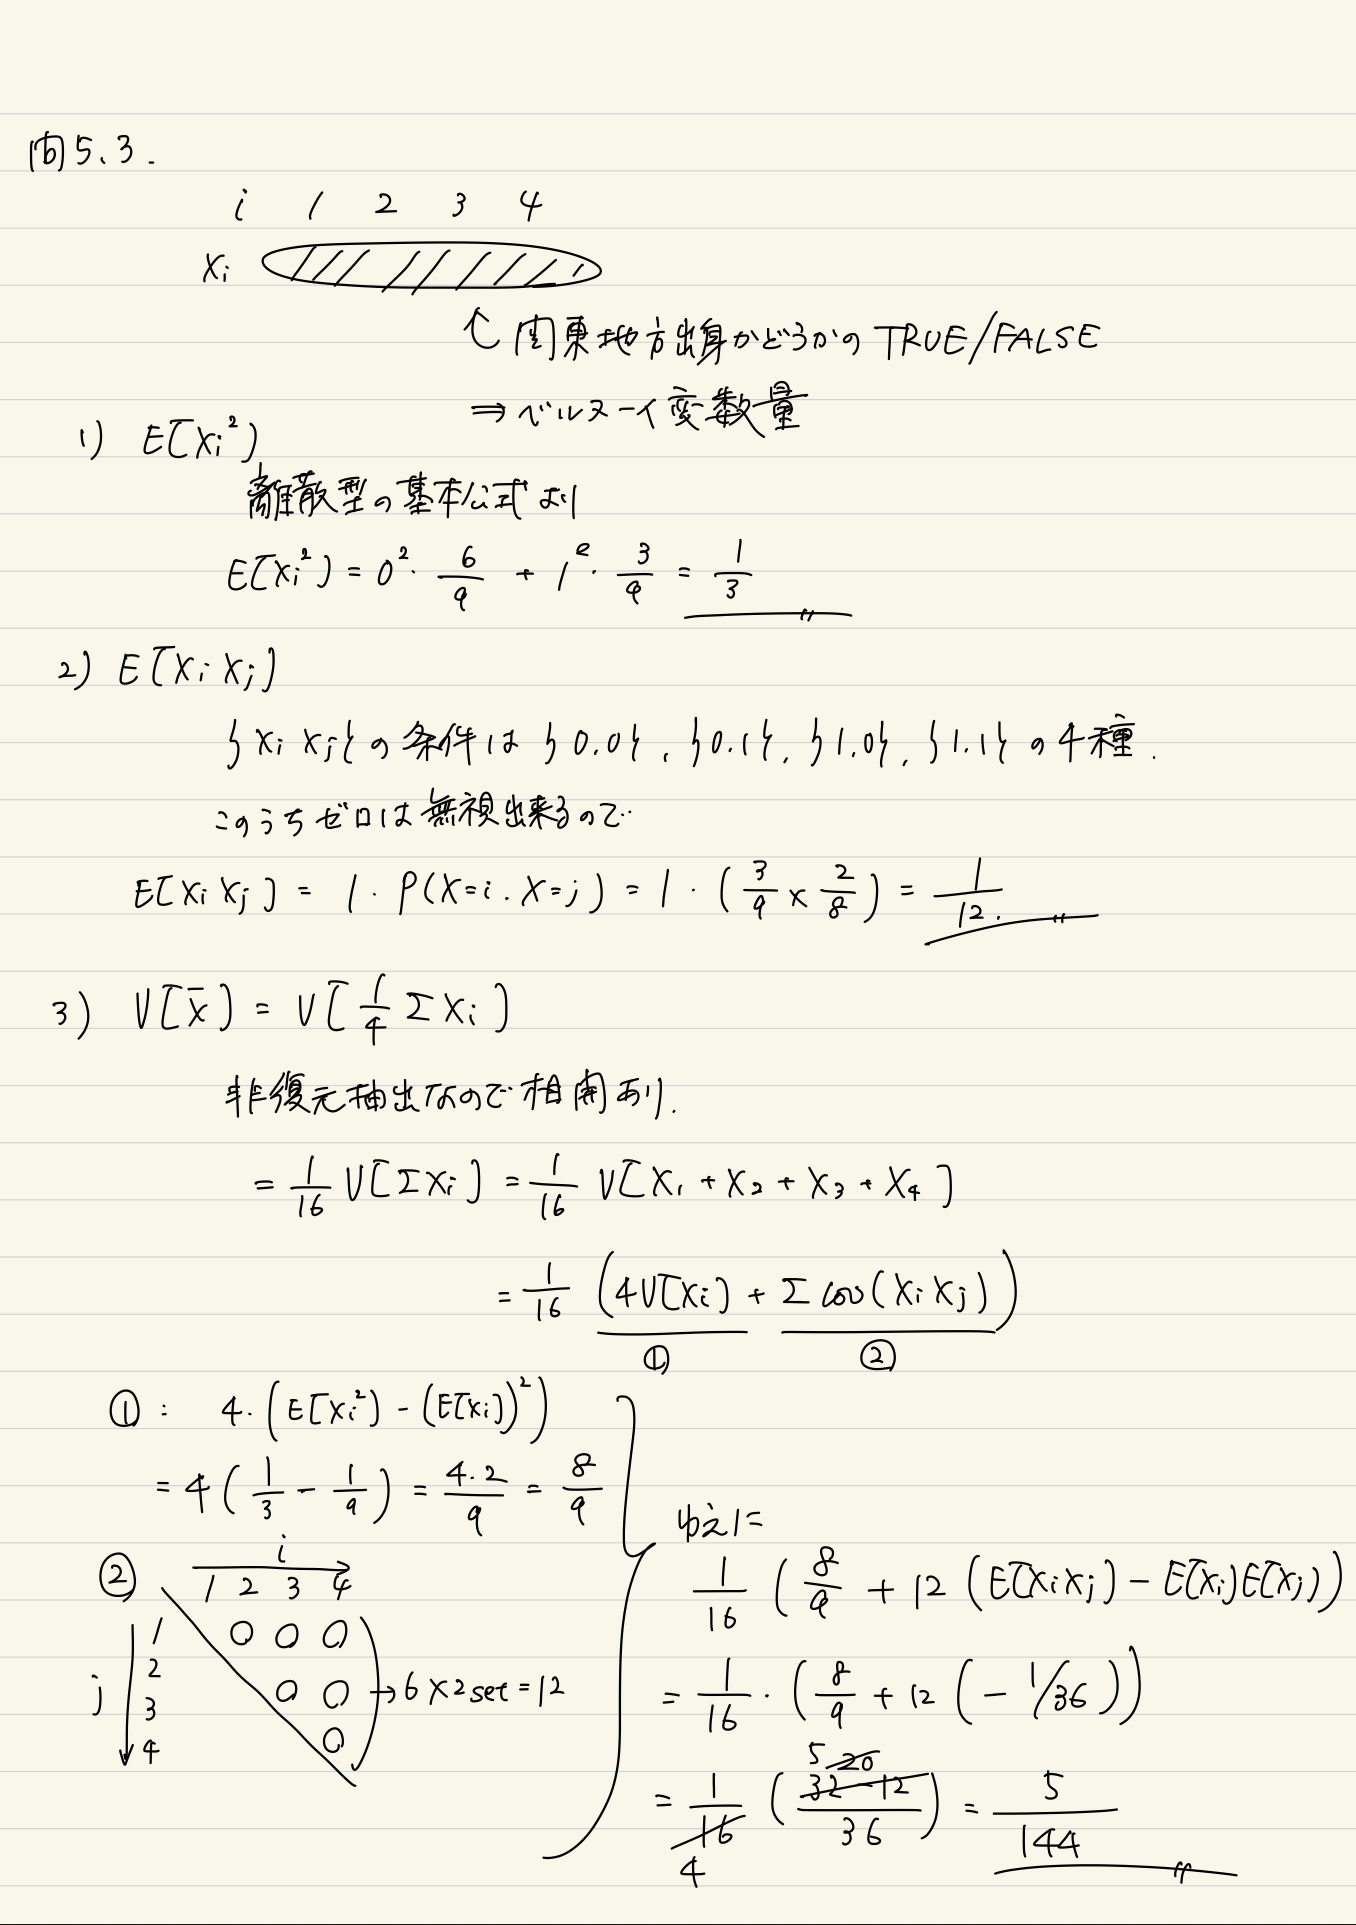 問5.3.
i 1 2 3 4
Xi
関東地方出身かどうかの TRUE/FALSE
⇒ ベルヌーイ変数量
1) E[Xi²]
離散型の基本公式より
E[Xi²] = 0²・6/9 + 1²・3/9 = 1/3
2) E[Xi Xj]
{Xi Xj}の条件は {0.0}, {0.1}, {1.0}, {1.1} の4種.
このうちゼロは無視出来るので
E[Xi Xj] = 1・P(X=i. X=j) = 1・(3/9 × 2/8) = 1/12.
3) V[X̄] = V[1/4 Σ Xi]
非復元抽出なので相関あり.
= 1/16 V[ΣXi] = 1/16 V[X₁ + X₂ + X₃ + X₄]
= 1/16 (4V[Xi] + Σ cov(Xi Xj))
① ②
① : 4・(E[Xi²] - (E[Xi])²)
= 4(1/3 - 1/9) = 4・2/9 = 8/9
② i
1 2 3 4
j
1 ○ ○ ○
2 ○ ○
3 ○
4
→ 6×2set=12
ゆえに
1/16 (8/9 + 12 (E[XiXj] - E[Xi]E[Xj]))
= 1/16・(8/9 + 12 (-1/36))
5 20
= 1/16 (32-12/36) = 5/144
4